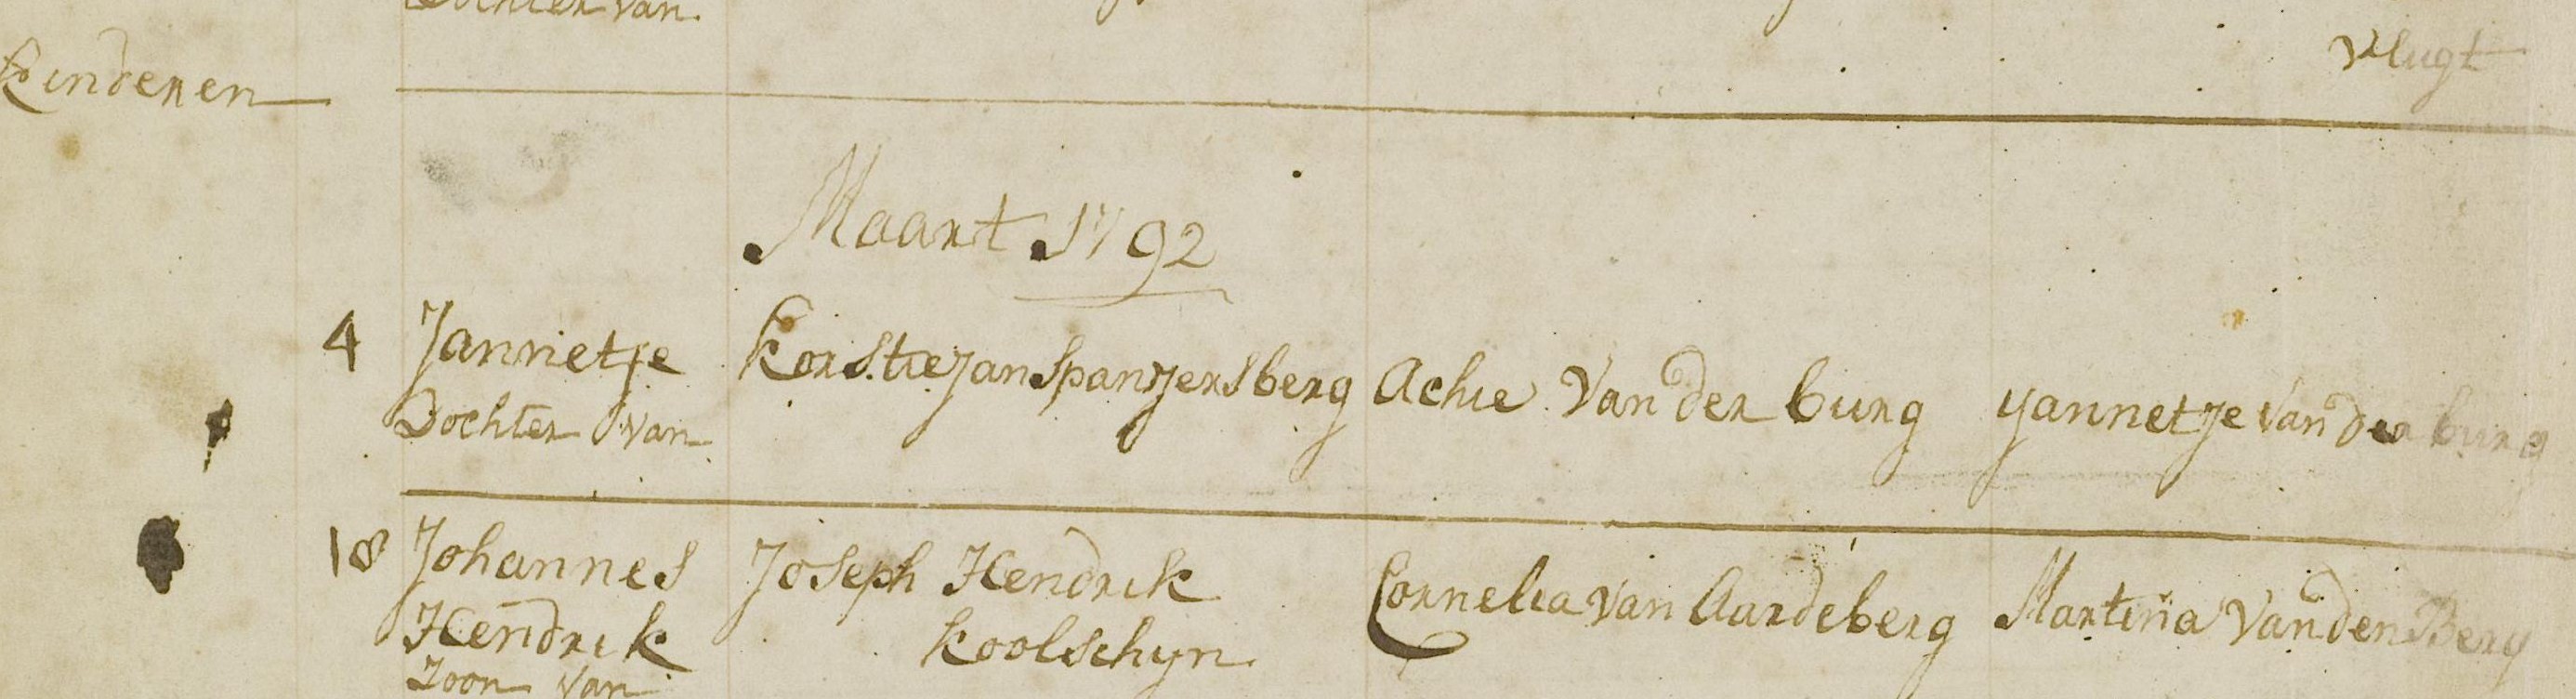 Dochter van
Vlugt
Kinderen
Maart 1792
4 Jannetje Korstiejan Spanjersberg Achie Van der burg yannetje Van der burg
Dochter van
18 Johannes Joseph Hendrik Cornelia van Aardeberg Martina Van den Berg
Hendrik Koolschyn
Zoon van